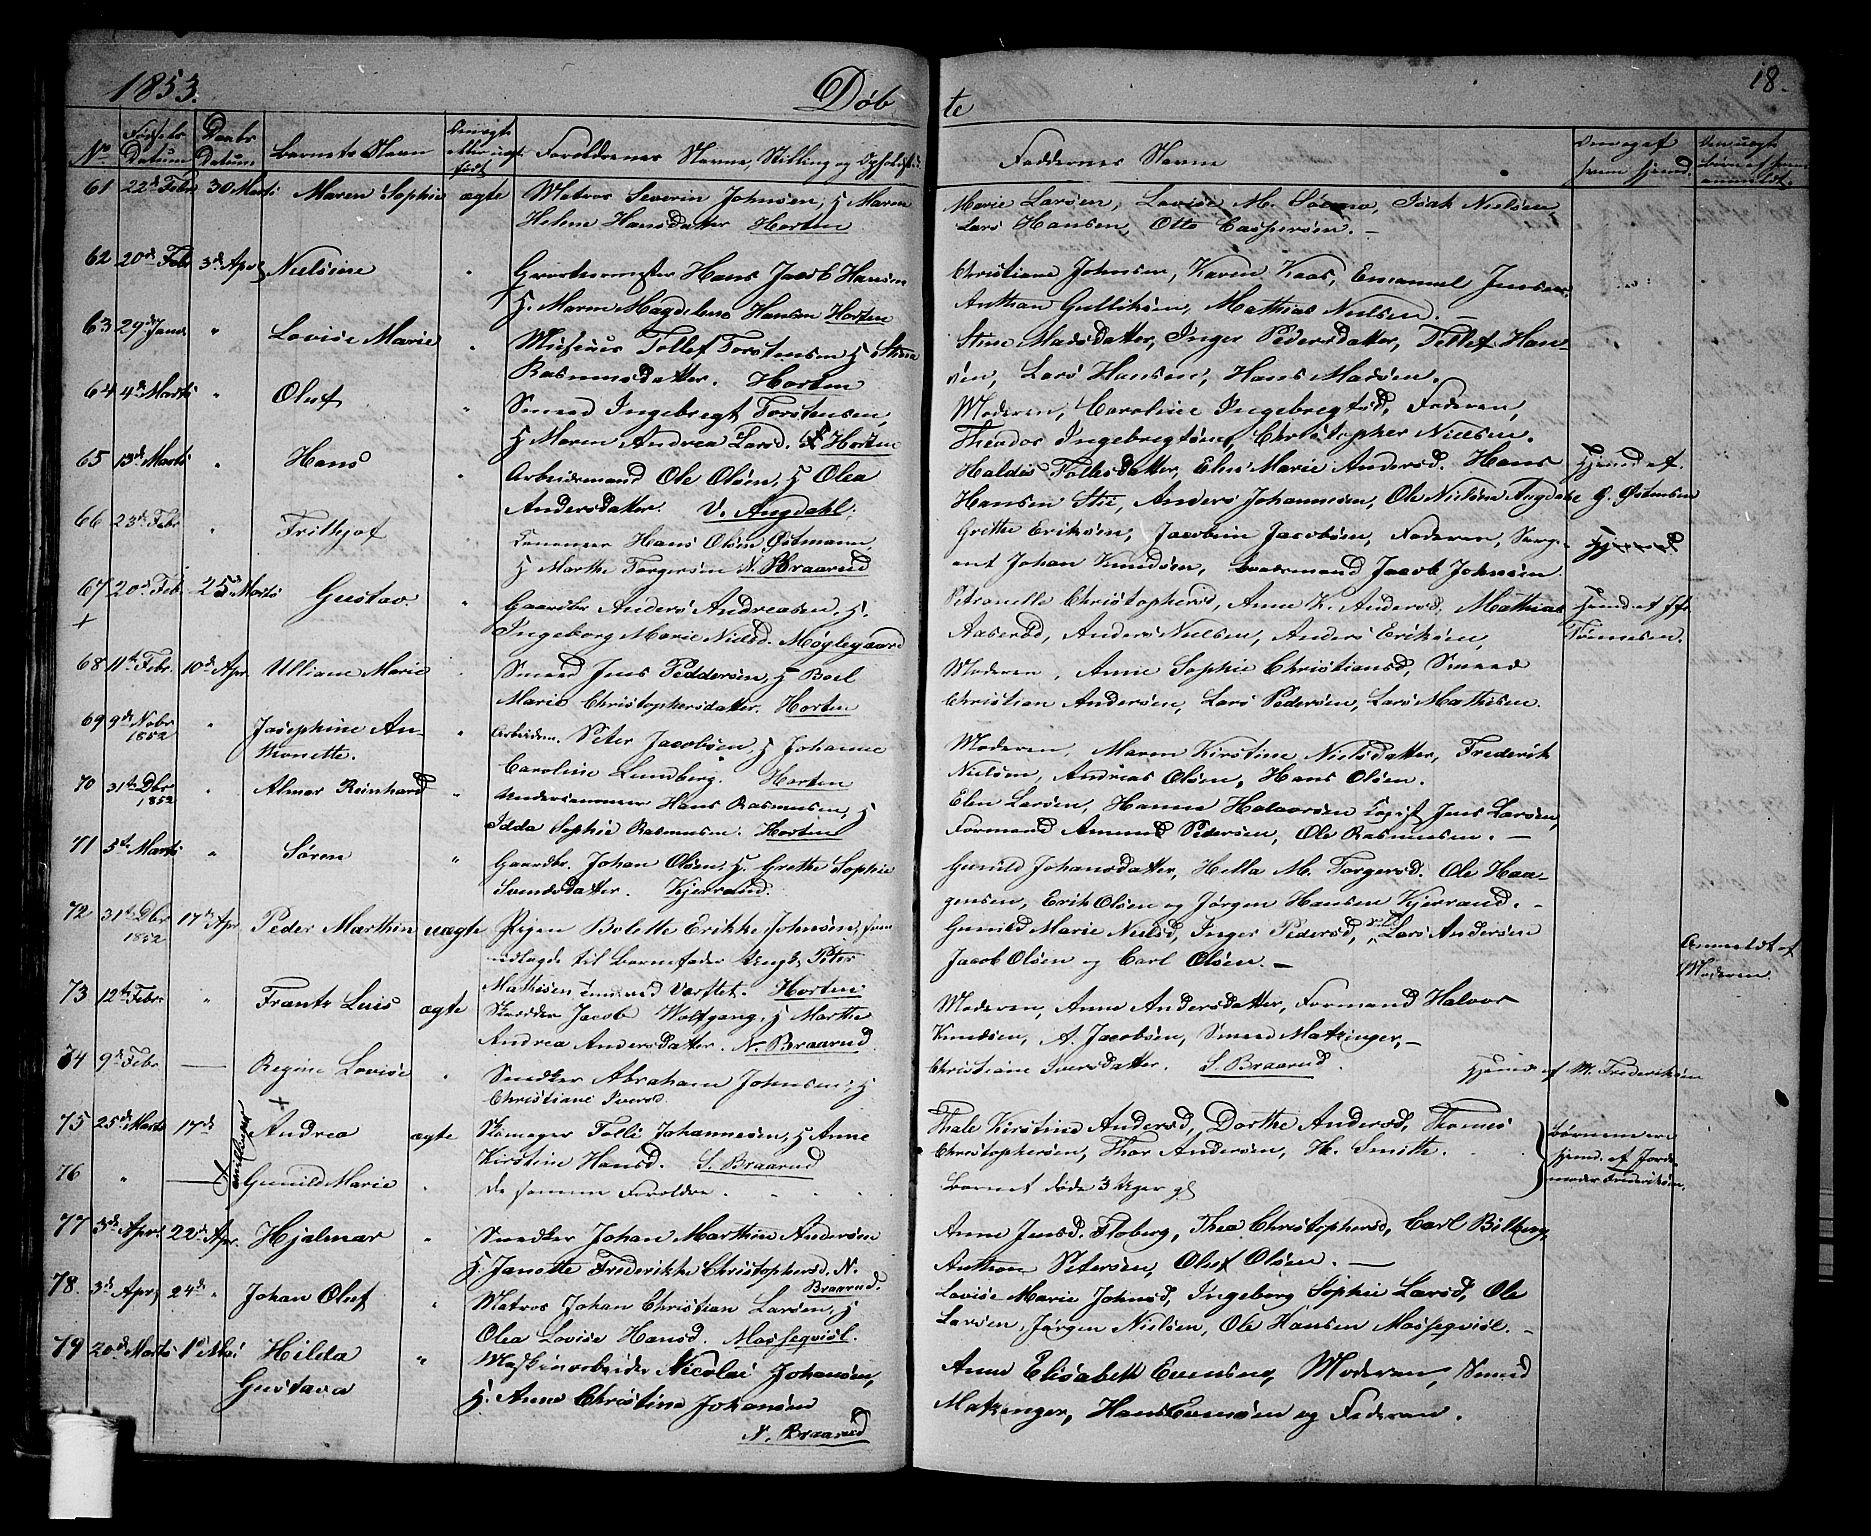 1853.
Døb
te
18.
No
Fødsels Datum
Daabs datum
Barnets Navn
Forældrenes Navne, Stilling og Opholdssted
Faddernes Navne
61 22de Febr 30 Marts Maren Sophie ægte Matros Severin Johnsen, H Maren
Helene Hansdatter Horten
Marie Larsen, Lovise M. Isak Nielsen
Lars Hansen, Otto Caspersen. —
62 20de Febr 3de April Nielsine " Hans Jacob Hansen
H. Maren Magdelene Hansen Horten
Christiane Johnsen, Karen Kaas, Emanuel Jensen,
Anthon Gulliksen, Mathias Nielsen. —
63 29de Janr " Lovise Marie " Tollef Torstensen H Stina
Rasmusdatter. Horten
Stine Madsdatter, Inger Pedersdatter, Tellef Han-
sen, Lars Hansen, Hans Madsen.
64 4de Marts " Oluf " Smed Ingebregt Torstensen,
H Maren Andrea Larsd. Horten
Moderen, Caroline Ingebregtsd, Faderen,
Theodor Ingebregtsen, Christopher Nielsen.
65 13de Marts " Hans " Arbeidsmand Ole Olsen, H Olea
Andersdatter. V. Augdahl.
Haldis Follesdatter, Elen Marie Andersd. Hans
Hansen Stie, Anders Johannesen, Ole Nielsen Augdahl
Hjemd. af
G. Østensen
66 23de Febr " Frithjof Hans Olsen Østmann,
H Marthe Torgersen N. Braarud
Grethe Eriksen, Jacobine Jacobsen, Faderen, Serge-
ant Johan Knudsen, Jacob Johnsen
67 20de Febr 25de Marts Gustav. " Gaardbr Anders Andreasen, H.
Ingeborg Marie Nielsd. Møglegaard
Petronelle Christophersd, Anne K. Andersd, Mathias
Aaserød, Anders Nielsen, Anders Eriksen,
Hjemd. af Jfr.
Tønnesen.
68 11te Febr. 10de Apr. Ulliane Marie Smed Jens Peddersen, H Boel
Marie Christophersdatter. Horten
Moderen, Anne Sophie Christiansd, Smed
Christian Andersen, Lars Pedersen, Lars Mathisen.
69 9de Nobr 1852 " Josephine An-
thonette. " Arbeidsm. Peter Jacobsen, H Johanne
Caroline Lundberg. Horten
Moderen, Maren Kirstine Nielsdatter, Frederik
Nielsen, Andreas Olsen, Hans Olsen.
70 31te Dbr 1852 " Almar Reinhard " Hans Rasmusen, H
Idda Sophie Rasmusen. Horten
Elen Larsen, Hanne Halvorsen Jens Larsen,
Formand Amund Pedersen, Ole Rasmusen. —
71 5te Marts " Søren " Gaardbr. Johan Olsen, H. Grethe Sophie
Svendsdatter. Kjerrand.
Gunild Johansdatter, Hella M. Torgersd. Ole Haa-
gensen, Erik Olsen og Jørgen Hansen Kjerrand. —
72 31te Dbr 1852 17de Apr Peder Marthin uægte Pigen Bolette Erikke Johnsen, som
udlagde til Barnefader Ungk. Peter
Mathisen ved Værftet. Horten
Gunild Marie Nielsd, Inger Pedersd, Lars Andersen
Jacob Olsen og Carl Olsen. —
Anmeldt af
Moderen.
73 12te Febr. " Frantz Luis ægte Skrædder Jacob Wolfgang, H Marthe
Andrea Andersdatter. N. Braarud
Moderen, Anne Andersdatter, Formand Halvor
Knudsen, A. Jacobsen, Smed Matzinger, —
74 9de Febr — Regine Lovise " Snedker Abraham Johnsen, H
Christiane Iversd.
Christiane Iversdatter. S. Braarud.
Hjemd. af M. Frederiksen
75 25de Marts 17de Andrea ægte Skomager Tolli Johannesen, H Anne
Kirstine Hansd. S. Braarud
Thale Kirstine Andersd, Dorthe Andersd, Tømes
Christophersen, Thor Andersen, H. Smitte.
Børnene ere
hjemd. af Jorde-
moder Frederiksen.
Tvillinger
76 " — Gunild Marie " de samme Forældre.
Barnet døde 3 Uger gl
77 5te Apr. 22de Apr. Hjalmar " Snedker Johan Marthin Andersen
H. Janette Frederikke Christophersd. N.
Braarud.
Anne Jensd. Floberg, Thea Christophersd, Carl Bilberg,
Anthon Petersen, Oluf Olsen. —
78. 3de April 24de " Johan Oluf " Matros Johan Christian Larsen, H
Olea Lovise Hansd. Masseqvist.
Lovise Marie Johnsd, Ingeborg Sophie Larsd, Ole
Larsen, Jørgen Nielsen, Ole Hansen Masseqvist. —
79 20de Marts 1ste Mai Hilda
Gustava " Maskinarbeider Nicolai Johansen,
H. Anne Christine Johansen
N. Braarud
Anne Elisabeth Evensen, Moderen, Smed
Matzinger, Hans Evensen og Faderen.